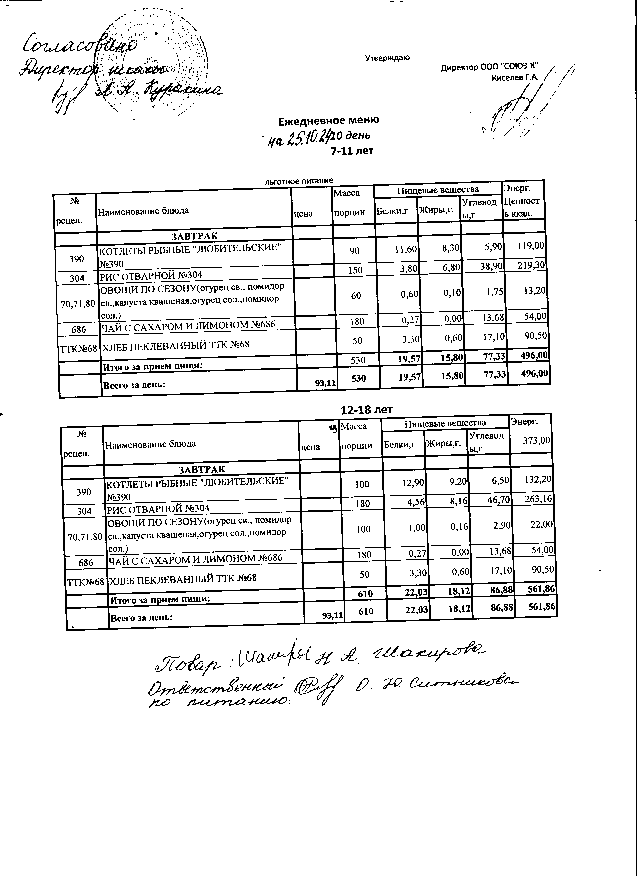 Согласовано
Директор школы
Л. А. Куракина
Утверждаю
Директор ООО "СОЮЗ К"
Киселев Г.А.
Ежедневное меню
на 25.10.24 20 день
7-11 лет
льготное питание
№ рецеп. Наименование блюда цена Масса порции Пищевые вещества Энерг. Ценность в ккал.
Белки,г Жиры,г. Углеводы,г
ЗАВТРАК
390 КОТЛЕТЫ РЫБНЫЕ "ЛЮБИТЕЛЬСКИЕ" №390 90 11,60 8,30 5,90 119,00
304 РИС ОТВАРНОЙ №304 150 3,80 6,80 38,90 219,30
70,71,80 ОВОЩИ ПО СЕЗОНУ(огурец св., помидор
св.,капуста квашеная,огурец сол.,помидор
сол.) 60 0,60 0,10 1,75 13,20
686 ЧАЙ С САХАРОМ И ЛИМОНОМ №686 180 0,27 0,00 13,68 54,00
ТТК№68 ХЛЕБ ПЕКЛЕВАННЫЙ ТТК №68 50 3,30 0,60 17,10 90,50
Итого за прием пищи: 530 19,57 15,80 77,33 496,00
Всего за день: 93,11 530 19,57 15,80 77,33 496,00
12-18 лет
№ рецеп. Наименование блюда цена Масса порции Пищевые вещества Энерг.
Белки,г. Жиры,г. Углеводы,г 373,00
ЗАВТРАК
390 КОТЛЕТЫ РЫБНЫЕ "ЛЮБИТЕЛЬСКИЕ" №390 100 12,90 9,20 6,50 132,20
304 РИС ОТВАРНОЙ №304 180 4,56 8,16 46,70 263,16
70,71,80 ОВОЩИ ПО СЕЗОНУ(огурец св., помидор
св.,капуста квашеная,огурец сол.,помидор
сол.) 100 1,00 0,16 2,90 22,00
686 ЧАЙ С САХАРОМ И ЛИМОНОМ №686 180 0,27 0,00 13,68 54,00
ТТК№68 ХЛЕБ ПЕКЛЕВАННЫЙ ТТК №68 50 3,30 0,60 17,10 90,50
Итого за прием пищи: 610 22,03 18,12 86,88 561,86
Всего за день: 93,11 610 22,03 18,12 86,88 561,86
Повар: Н А. Шакирова
Ответственный О. Ю. Ситникова
по питанию.